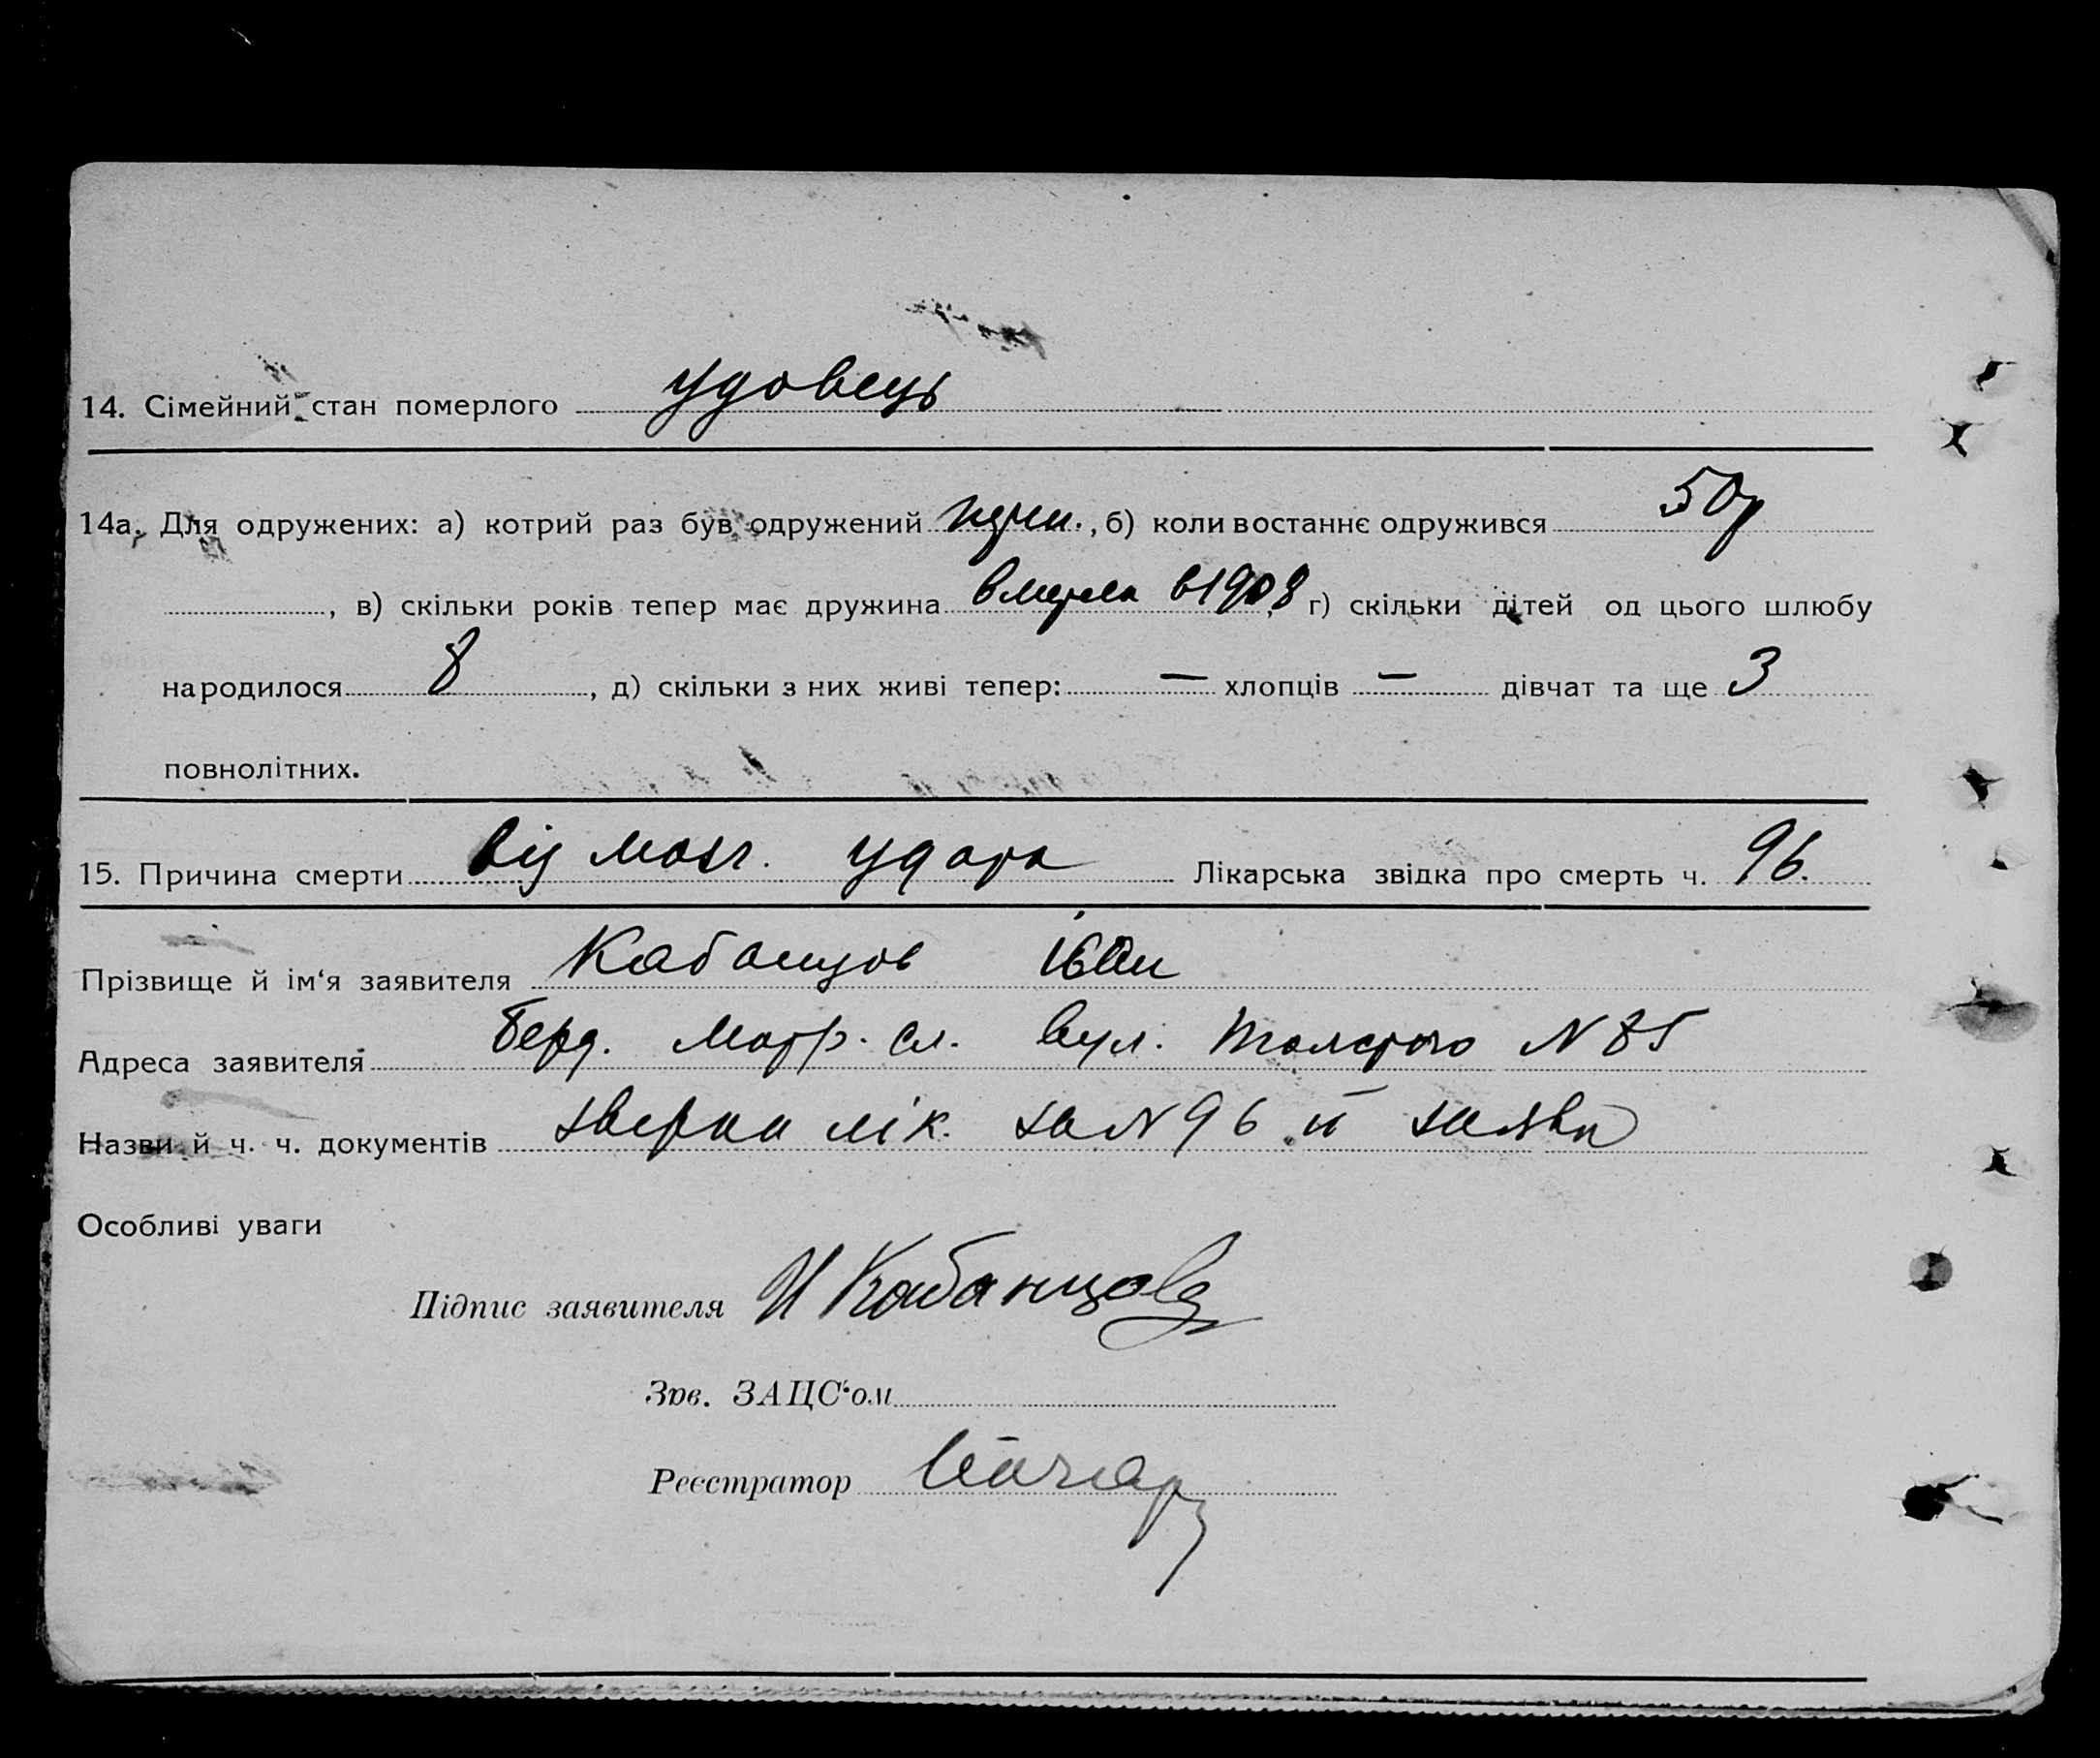 14. Сімейний стан померлого удовець
14а. Для одружених: а) котрий раз був одружений перш., б) коли востаннє одружився 50р
, в) скільки років тепер має дружина вмерла в 1908, г) скільки дітей од цього шлюбу
народилося 8, д) скільки з них живі тепер: — хлопців — дівчат та ще 3
повнолітних.
15. Причина смерти від мозг. удара Лікарська звідка про смерть ч. 96.
Прізвище й ім‘я заявителя Кабанцов Іван
Адреса заявителя Берд. Матр. сл. вул. Толстого N 85
Назви й ч. ч. документів лік. за N 96 й заява
Особливі уваги
Підпис заявителя И Кабанцова
Зав. ЗАЦС‘ом
Реєстратор